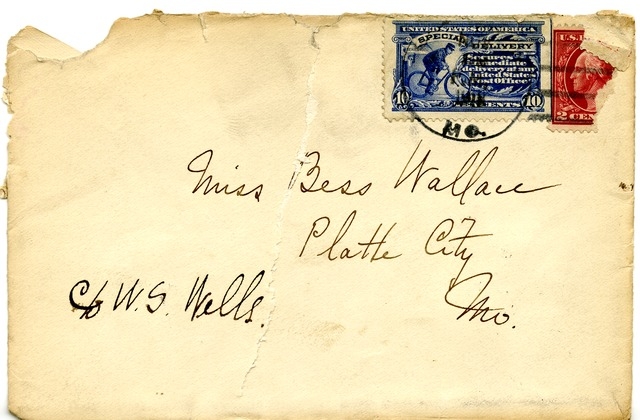 UNITED STATES OF AMERICA
SPECIAL DELIVERY
Secures
immediate
delivery at any
United States
Post Office
10 CENTS 10
U.S.
2 CEN
MO.
Miss Bess Wallace
Platte City
c/o W.S. Wells.
Mo.